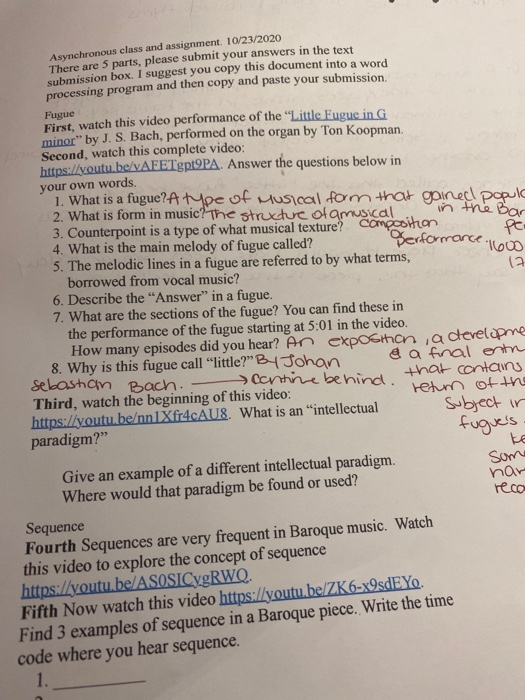 Asynchronous class and assignment. 10/23/2020
There are 5 parts, please submit your answers in the text
submission box. I suggest you copy this document into a word
processing program and then copy and paste your submission.
Fugue
First, watch this video performance of the "Little Fugue in G
minor" by J. S. Bach, performed on the organ by Ton Koopman.
Second, watch this complete video:
https://youtu.be/vAFETgpt9PA. Answer the questions below in
your own words.
1. What is a fugue? A type of Musical form that gained popula
in the Bar
2. What is form in music? The structure of a musical
composition
or
Performance.
Pe
1600
17
3. Counterpoint is a type of what musical texture?
4. What is the main melody of fugue called?
5. The melodic lines in a fugue are referred to by what terms,
borrowed from vocal music?
6. Describe the "Answer" in a fugue.
7. What are the sections of the fugue? You can find these in
the performance of the fugue starting at 5:01 in the video.
How many episodes did you hear? An exposition, a developme
& a final entr
that contains
return of the
Subject in
fugue's
ke
Som
har
reco
8. Why is this fugue call "little?" By Johan
Sebastian Bach. → Contine behind.
Third, watch the beginning of this video:
https://youtu.be/nn1Xfr4cAU8. What is an "intellectual
paradigm?"
Give an example of a different intellectual paradigm.
Where would that paradigm be found or used?
Sequence
Fourth Sequences are very frequent in Baroque music. Watch
this video to explore the concept of sequence
https://youtu.be/ASOSICygRWQ.
Fifth Now watch this video https://youtu.be/ZK6-x9sdEYo.
Find 3 examples of sequence in a Baroque piece. Write the time
code where you hear sequence.
1.